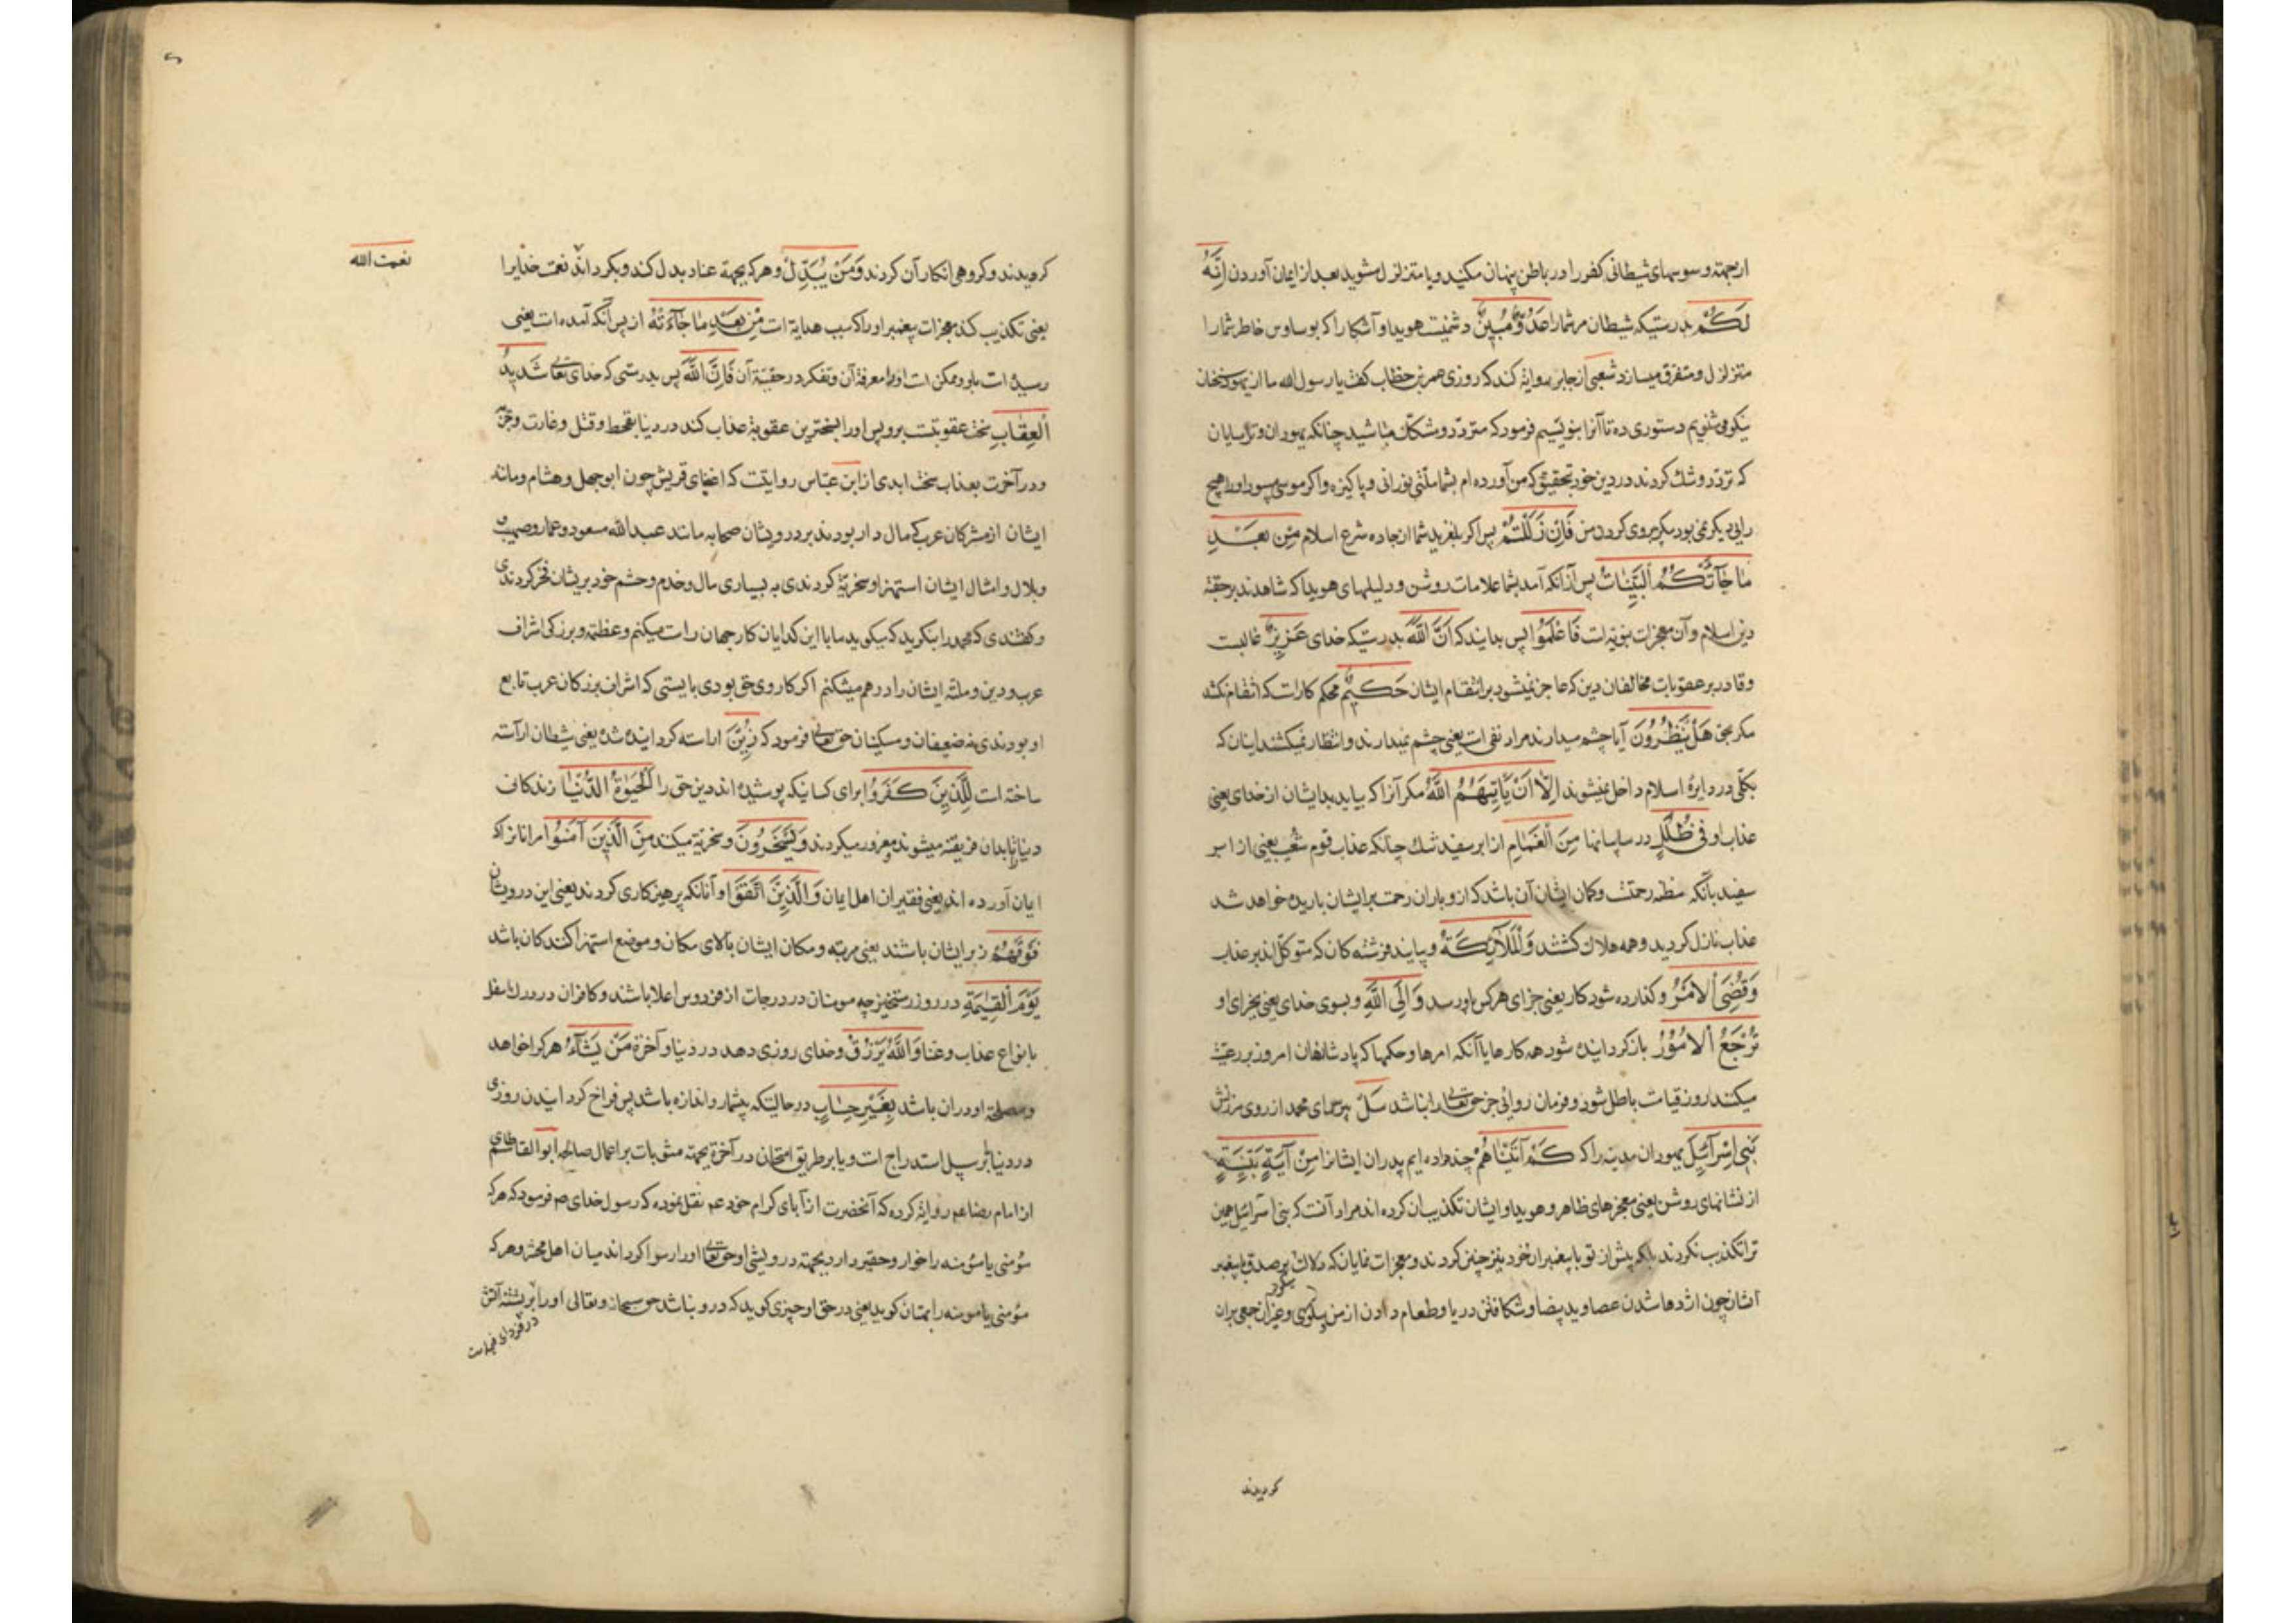 ازجهته وسوسهای شیطانی کفر را در باطن پنهان مکنید و یا متزلزل مشوید بعد از ایمان آوردن اِنَّهُ
لَكُمْ بدرستیکه شیطان مر شمارا عَدُوٌّ مُبِينٌ دشمنیست هویدا و آشکارا که بوساوس خاطر شمارا
متزلزل و متفرق میسازد شعبی از جابر روایة کند که روزی عمر بن خطاب کفت یا رسول الله ما از یهود سخنان
نیکو می شنویم دستوری ده تا آنرا بنویسیم فرمود که متردّد و متشکک مباشید چنانکه یهودان و ترسایان
که تردّد و شك کردند در دین خود بتحقیق که من آورده ام بشما ملّتی نورانی و پاکیزه و اکر موسی بودی اورا هیچ
رایی دیکر نمی بود مکر پیروی کردن من فَاِنْ زَلَلْتُمْ پس اکر بلغزید شما از جاده شرع اسلام مِنْ بَعْدِ
مَا جَآءَتْكُمُ الْبَيِّنَاتُ پس از آنکه آمد بشما علامات روشن و دلیلهای هویدا که شاهدند بر حقیة
دین اسلام و آن معجزات نبویه است فَاعْلَمُوا پس بدانید که اَنَّ اللّٰهَ بدرستیکه خدای عَزِيزٌ غالبست
وقادر بر عقوبات مخالفان دین که عاجز نمیشود بر انتقام ایشان حَكِيمٌ محکم کارست که انتقام نکشد
مکر بحق هَلْ يَنْظُرُونَ آیا چشم میدارند مراد نفی است یعنی چشم نمیدارند و انتظار نمیکشند اینان که
بکلّی در دایرهٔ اسلام داخل نمیشوند اِلَّا اَنْ يَاْتِيَهُمُ اللّٰهُ مکر آنرا که بیاید بدایشان از خدای یعنی
عذاب او فِی ظُلَلٍ در سایبانها مِنَ الْغَمَامِ از ابر سفید تنك چنانکه عذاب قوم شعیب یعنی از ابر
سفید بآنکه مظنه رحمتست و کمان ایشان آن باشد که از و باران رحمت بر ایشان باریده خواهد شد
عذاب نازل کردید و همه هلاك کشتند وَالْمَلَآئِكَةُ و بیایند فرشته کان که متوکل اند بر عذاب
وَقُضِیَ الْاَمْرُ و کذارده شود کار یعنی جزای هر کس باو رسد وَاِلَى اللّٰهِ و بسوی خدای یعنی بجزای او
تُرْجَعُ الْاُمُوُرُ باز کردانیده شود همه کارها یا آنکه امرها و حکمها که پادشاهان امروز بر رعیت
میکنند روز قیامت باطل شود و فرمان روائی جز حق تعالی را نباشد سَلْ بپرس ای محمد از روی سرزنش
بَنِی اِسْرَآئِيلَ یهودان مدینه را که كَمْ آتَيْنَاهُمْ چند داده ایم پدران ایشانرا مِنْ آيَةٍ بَيِّنَةٍ
از نشانهای روشن یعنی معجزهای ظاهر و هویدا و ایشان تکذیب آن کرده اند مراد آنست که بنی اسرائیل همین
ترا تکذیب نکردند بلکه پیش از تو با پیغمبران خود نیز چنین کردند و معجزات نمایان که دلالت بر صدق پیغمبر
ایشان چون اژدها شدن عصا و ید بیضا و شکافتن دریا و طعام دادن از من و سلوی و غیر آن جمعی بران
میکرد
کردیدند
نعمت الله
کرویدند و کروهی انکار آن کردند وَمَنْ يُبَدِّلْ و هر که بجهة عناد بدل کند و بکرداند نعمت خدایرا
یعنی تکذیب کند معجزات پیغمبر اورا که سبب هدایة است مِنْ بَعْدِ مَا جَآءَتْهُ از پس آنکه آمده است یعنی
رسیده است باو و ممکن است اورا معرفة آن و تفکر در حقیة آن فَاِنَّ اللّٰهَ پس بدرستی که خدای تعالی شَدِيدُ
الْعِقَابِ سخت عقوبتست بر وپس اورا بسختترین عقوبة عذاب کند در دنیا بقحط و قتل و غارت
و در آخرت بعذاب سخت ابدی از ابن عبّاس روایتست که اغنیای قریش چون ابوجهل و هشام و مانند
ایشان از مشرکان عرب که مال دار بودند بر درویشان صحابه مانند عبدالله مسعود و عمار و صهیب
و بلال و امثال ایشان استهزا و سخریّة کردندی به بسیاری مال و خدم و حشم خود بریشان فخر کردندی
و کفتندی که محمد را بنکرید که میکوید ما با این کدایان کار جهان راست میکنم و عظمة و بزرکی اشراف
عرب و دین و ملّة ایشان را درهم میشکنم اکر کار وی حق بودی بایستی که اشراف بزرکان عرب تابع
او بودندی نه ضعیفان و مسکینان حق تعالی فرمود که زُيِّنَ اراسته کردانیده شده یعنی شیطان آراسته
ساخته است لِلَّذِينَ كَفَرُوا برای کسانیکه پوشیده اند دین حق را الْحَيٰوةُ الدُّنْيَا زندکانی
دنیا تا بدان فریفته میشوند و مغرور میکردند وَيَسْخَرُونَ و سخریّة میکنند مِنَ الَّذِينَ آمَنُوا مر انانرا که
ایمان آورده اند یعنی فقیران اهل ایمان وَالَّذِينَ اتَّقَوْا و آنانکه پرهیزکاری کردند یعنی این درویشان
فَوْقَهُمْ زبر ایشان باشند یعنی مرتبه و مکان ایشان بالای مکان و موضع استهزا کنندکان باشد
يَوْمَ الْقِيٰمَةِ در روز رستخیز چه مومنان در درجات از فردوس اعلا باشند و کافران در درك اسفل
بانواع عذاب و عنا وَاللّٰهُ يَرْزُقُ و خدای روزی دهد در دنیا و آخرة مَنْ يَشَآءُ هر که را خواهد
و مصلحة او دران باشد بِغَيْرِ حِسَابٍ در حالیتکه بیشمار و اندازه باشد پس فراخ کردانیدن روزی
در دنیا بر سبیل استدراج است و یا بر طریق امتحان در آخرة بجهته مثوبات بر اعمال صالحه ابوالقاسم طائی
از امام رضا عم روایة کرده که آنحضرت از آبای کرام خود عم نقل نموده که رسول خدای صم فرمود که هر که
مؤمنی یا مؤمنه را خوار و حقیر دارد بجهته درویشی او حق تعالی اورا رسوا کرداند میان اهل محشر و هر که
مؤمنی یا مومنه را بهتان کوید یعنی در حق او چیزی کوید که درو نباشد حق سبحانه و تعالی اورا بر پشته آتش
در فردای قیامت